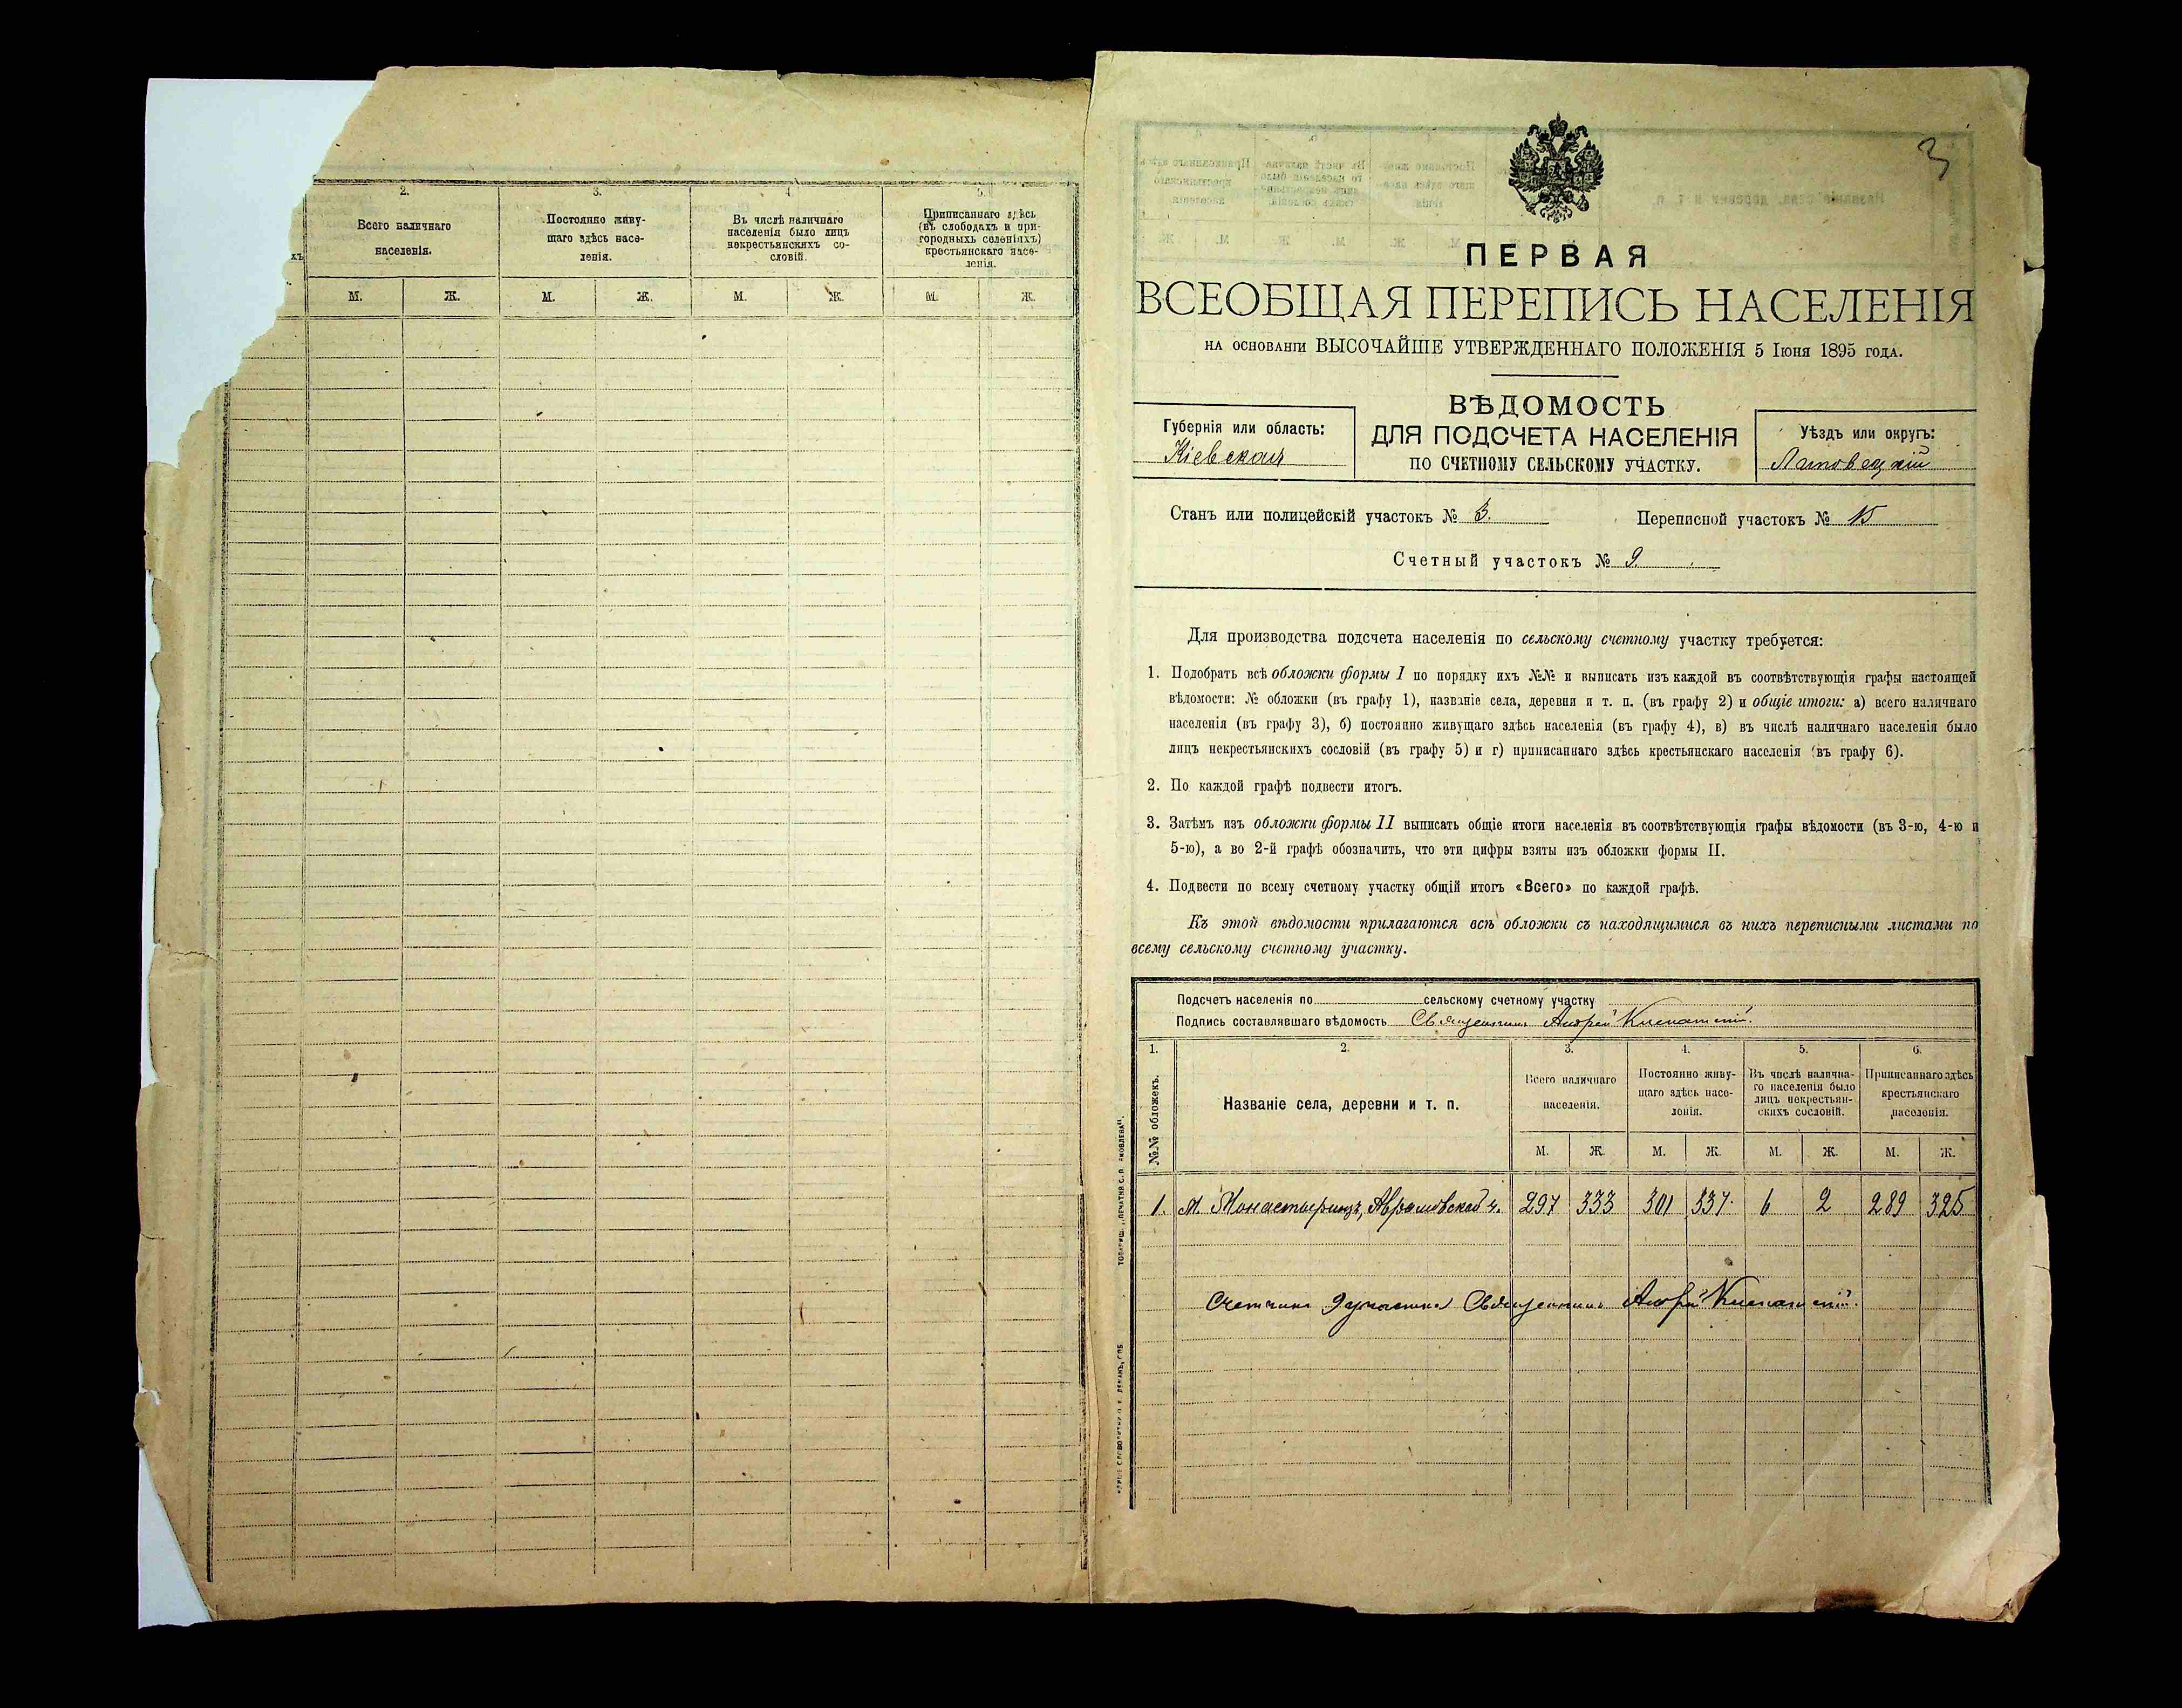 2.
3.
4.
5.
хъ
Всего наличнаго
населенія.
Постоянно живу-
щаго здѣсь насе-
ленія.
Въ числѣ наличнаго
населенія было лицъ
некрестьянскихъ со-
словій.
Приписаннаго здѣсь
(въ слободахъ и при-
городныхъ селеніяхъ)
крестьянскаго насе-
ленія.
М. Ж. М. Ж. М. Ж. М. Ж.
3
ПЕРВАЯ
ВСЕОБЩАЯ ПЕРЕПИСЬ НАСЕЛЕНІЯ
НА ОСНОВАНІИ ВЫСОЧАЙШЕ УТВЕРЖДЕННАГО ПОЛОЖЕНІЯ 5 Іюня 1895 ГОДА.
ВѢДОМОСТЬ
ДЛЯ ПОДСЧЕТА НАСЕЛЕНІЯ
ПО СЧЕТНОМУ СЕЛЬСКОМУ УЧАСТКУ.
Губернія или область:
Кіевская
Уѣздъ или округъ:
Станъ или полицейскій участокъ № 3. Переписной участокъ № 15
Счетный участокъ № 9.
Для производства подсчета населенія по сельскому счетному участку требуется:
1. Подобрать всѣ обложки формы I по порядку ихъ №№ и выписать изъ каждой въ соотвѣтствующія графы настоящей
вѣдомости: № обложки (въ графу 1), названіе села, деревни и т. п. (въ графу 2) и общіе итоги: а) всего наличнаго
населенія (въ графу 3), б) постоянно живущаго здѣсь населенія (въ графу 4), в) въ числѣ наличнаго населенія было
лицъ некрестьянскихъ сословій (въ графу 5) и г) приписаннаго здѣсь крестьянскаго населенія (въ графу 6).
2. По каждой графѣ подвести итогъ.
3. Затѣмъ изъ обложки формы II выписать общіе итоги населенія въ соотвѣтствующія графы вѣдомости (въ 3-ю, 4-ю и
5-ю), а во 2-й графѣ обозначить, что эти цифры взяты изъ обложки формы II.
4. Подвести по всему счетному участку общій итогъ «Всего» по каждой графѣ.
Къ этой вѣдомости прилагаются всѣ обложки съ находящимися въ нихъ переписными листами по
всему сельскому счетному участку.
Подсчетъ населенія по сельскому счетному участку
Подпись составлявшаго вѣдомость Священникъ Андрей
1. 2. 3. 4. 5. 6.
№№ обложекъ.
Названіе села, деревни и т. п.
Всего наличнаго
населенія.
Постоянно живу-
щаго здѣсь насе-
ленія.
Въ числѣ налична-
го населенія было
лицъ некрестьян-
скихъ сословій.
Приписаннаго здѣсь
крестьянскаго
населенія.
М. Ж. М. Ж. М. Ж. М. Ж.
1. М. Монастырище, Аврамовской ч. 297 333 301 337 6 2 289 325
Счетчикъ 9 участка Священникъ Андрей